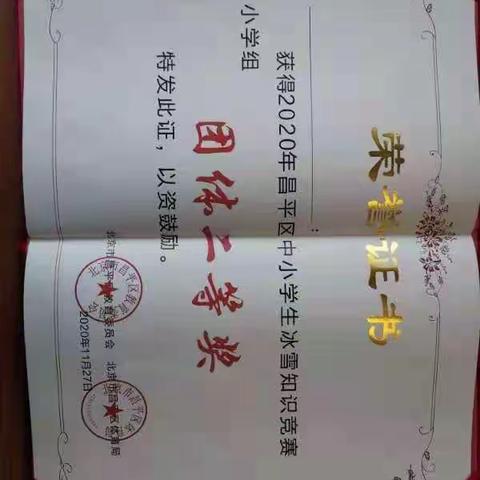 荣誉证书
:
获得2020年昌平区中小学生冰雪知识竞赛
小学组
团体二等奖
特发此证，以资鼓励。
北京市昌平区教育委员会 北京市昌平区体育局
2020年11月27日